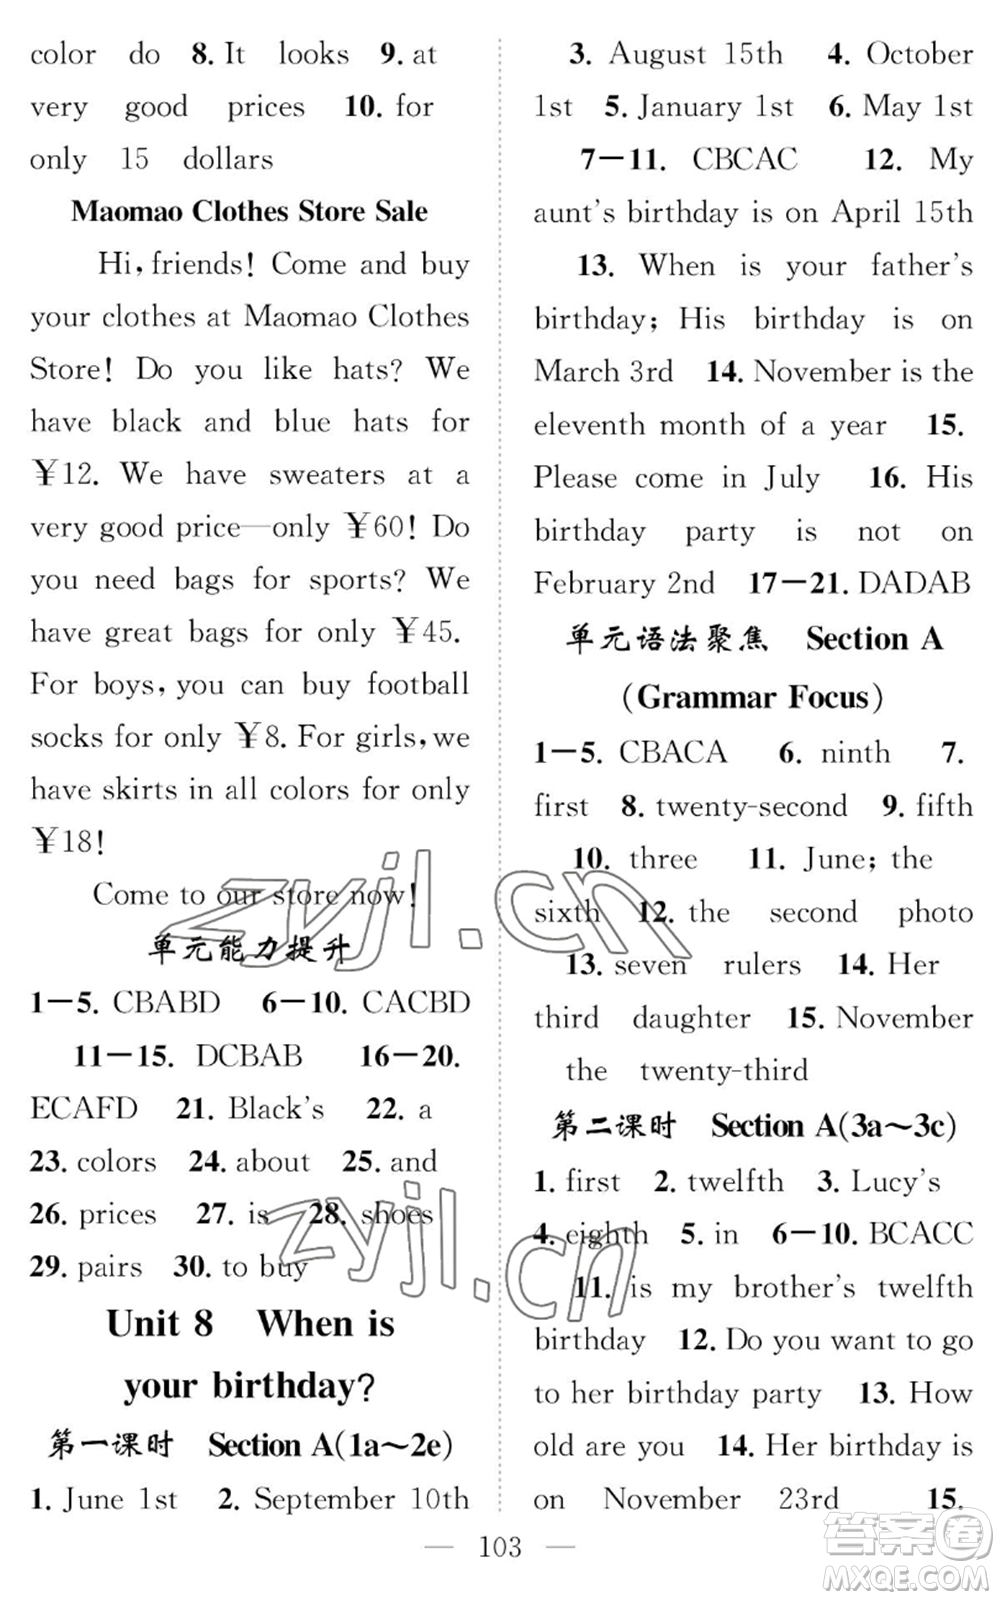 color do 8. It looks 9. at
very good prices 10. for
only 15 dollars
Maomao Clothes Store Sale
Hi, friends! Come and buy
your clothes at Maomao Clothes
Store! Do you like hats? We
have black and blue hats for
￥12. We have sweaters at a
very good price—only ￥60! Do
you need bags for sports? We
have great bags for only ￥45.
For boys, you can buy football
socks for only ￥8. For girls, we
have skirts in all colors for only
￥18!
Come to our store now!
单元能力提升
1－5. CBABD 6－10. CACBD
11－15. DCBAB 16－20.
ECAFD 21. Black's 22. a
23. colors 24. about 25. and
26. prices 27. is 28. shoes
29. pairs 30. to buy
Unit 8 When is
your birthday?
第一课时 Section A(1a～2e)
1. June 1st 2. September 10th
3. August 15th 4. October
1st 5. January 1st 6. May 1st
7－11. CBCAC 12. My
aunt's birthday is on April 15th
13. When is your father's
birthday; His birthday is on
March 3rd 14. November is the
eleventh month of a year 15.
Please come in July 16. His
birthday party is not on
February 2nd 17－21. DADAB
单元语法聚焦 Section A
(Grammar Focus)
1－5. CBACA 6. ninth 7.
first 8. twenty-second 9. fifth
10. three 11. June; the
sixth 12. the second photo
13. seven rulers 14. Her
third daughter 15. November
the twenty-third
第二课时 Section A(3a～3c)
1. first 2. twelfth 3. Lucy's
4. eighth 5. in 6－10. BCACC
11. is my brother's twelfth
birthday 12. Do you want to go
to her birthday party 13. How
old are you 14. Her birthday is
on November 23rd 15.
103
zyjl.cn
zyjl.cn
答案圈
MXQE.COM